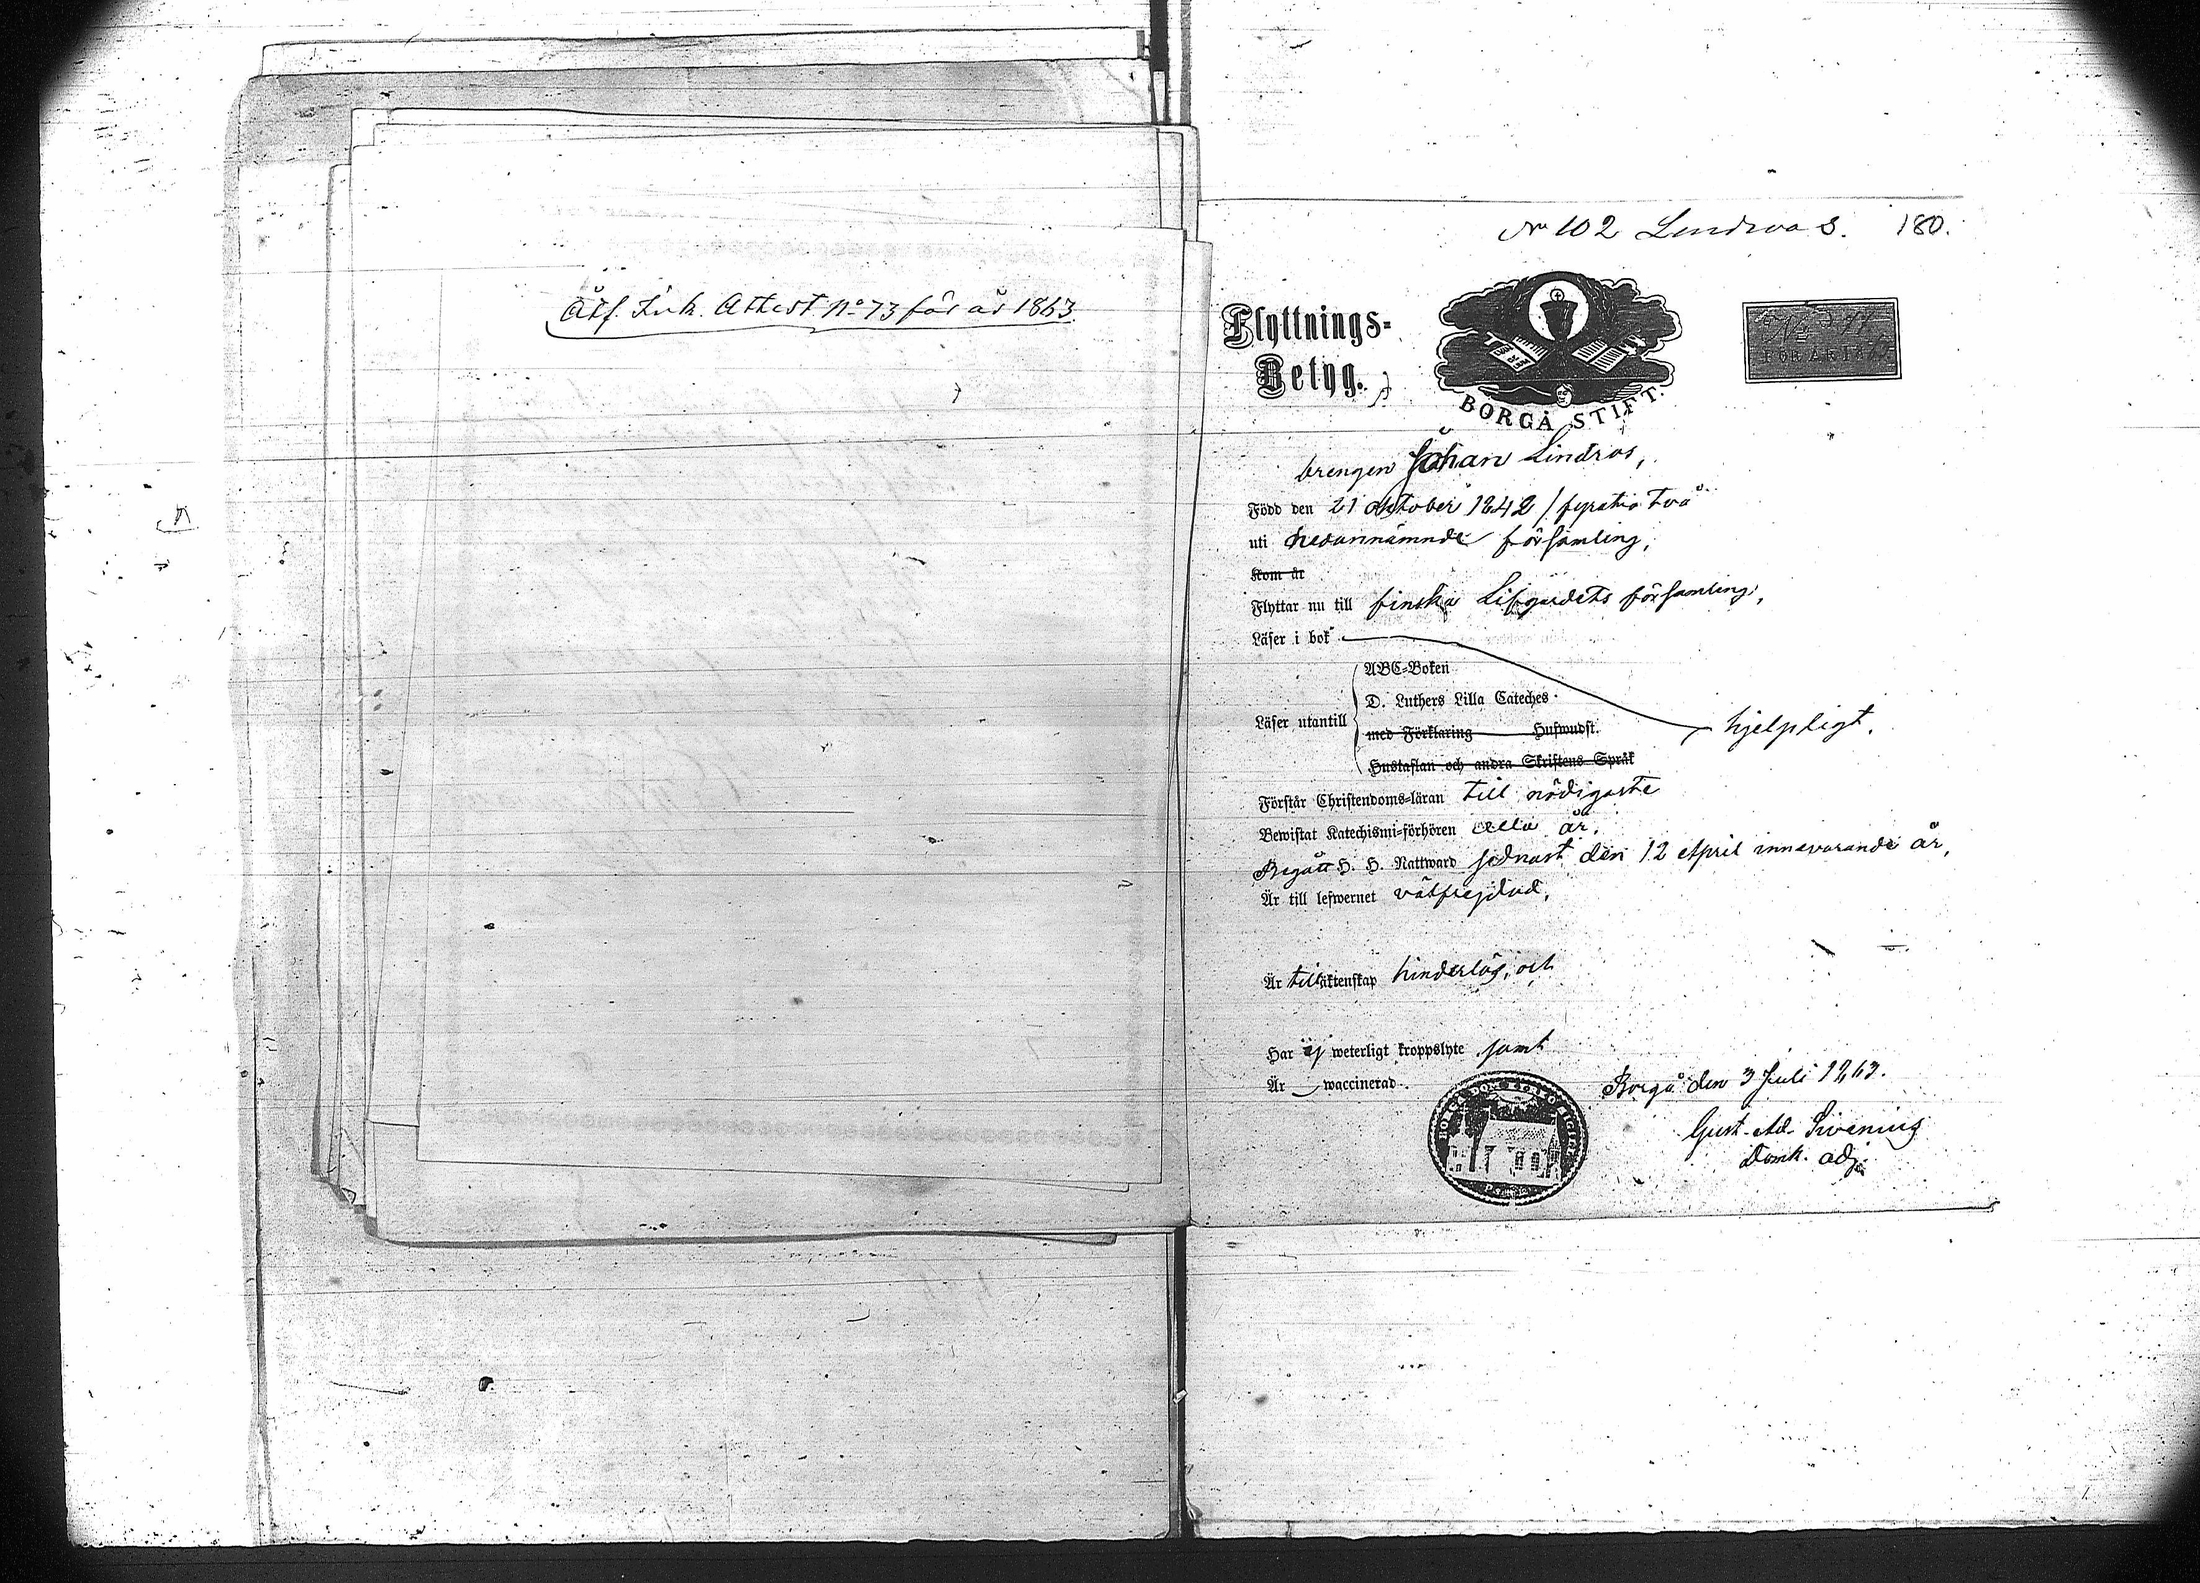 Åtf. Ink. Attest No 73 för år 1863
No 102 Lindroos. 180.
Flyttnings-
Betyg.
BORGÅ STIFT.
No 
FÖR ÅR 18
drengen Johan Lindros,
Född den 21 oktober 1842 / fyratio två
uti nedannämnde församling,
Kom år
Flyttar nu till finska Lifgardets församling,
Läser i bok
ABC-Boken
D. Luthers Lilla Cateches
Läser utantill
med Förklaring Hufwudst.
hjelpligt.
Hustaflan och andra Skriftens Språk
Förstår Christendoms-läran till nödigaste
Bewistat Katechismi-förhören alla år.
Begått H. H. Nattward sednast den 12 April innevarande år,
Är till lefwernet välfrejdad,
Är till äktenskap hinderlös, och
Har ej weterligt kroppslyte samt
Är waccinerad.
Borgå den 3 Juli 1863.
Gust. Ad. Sivenius
Domk. adj.